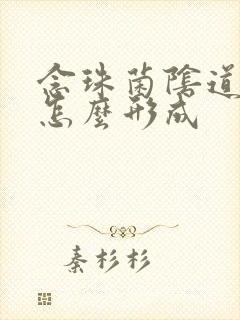 念珠菌陰道
怎麼形成
秦杉杉